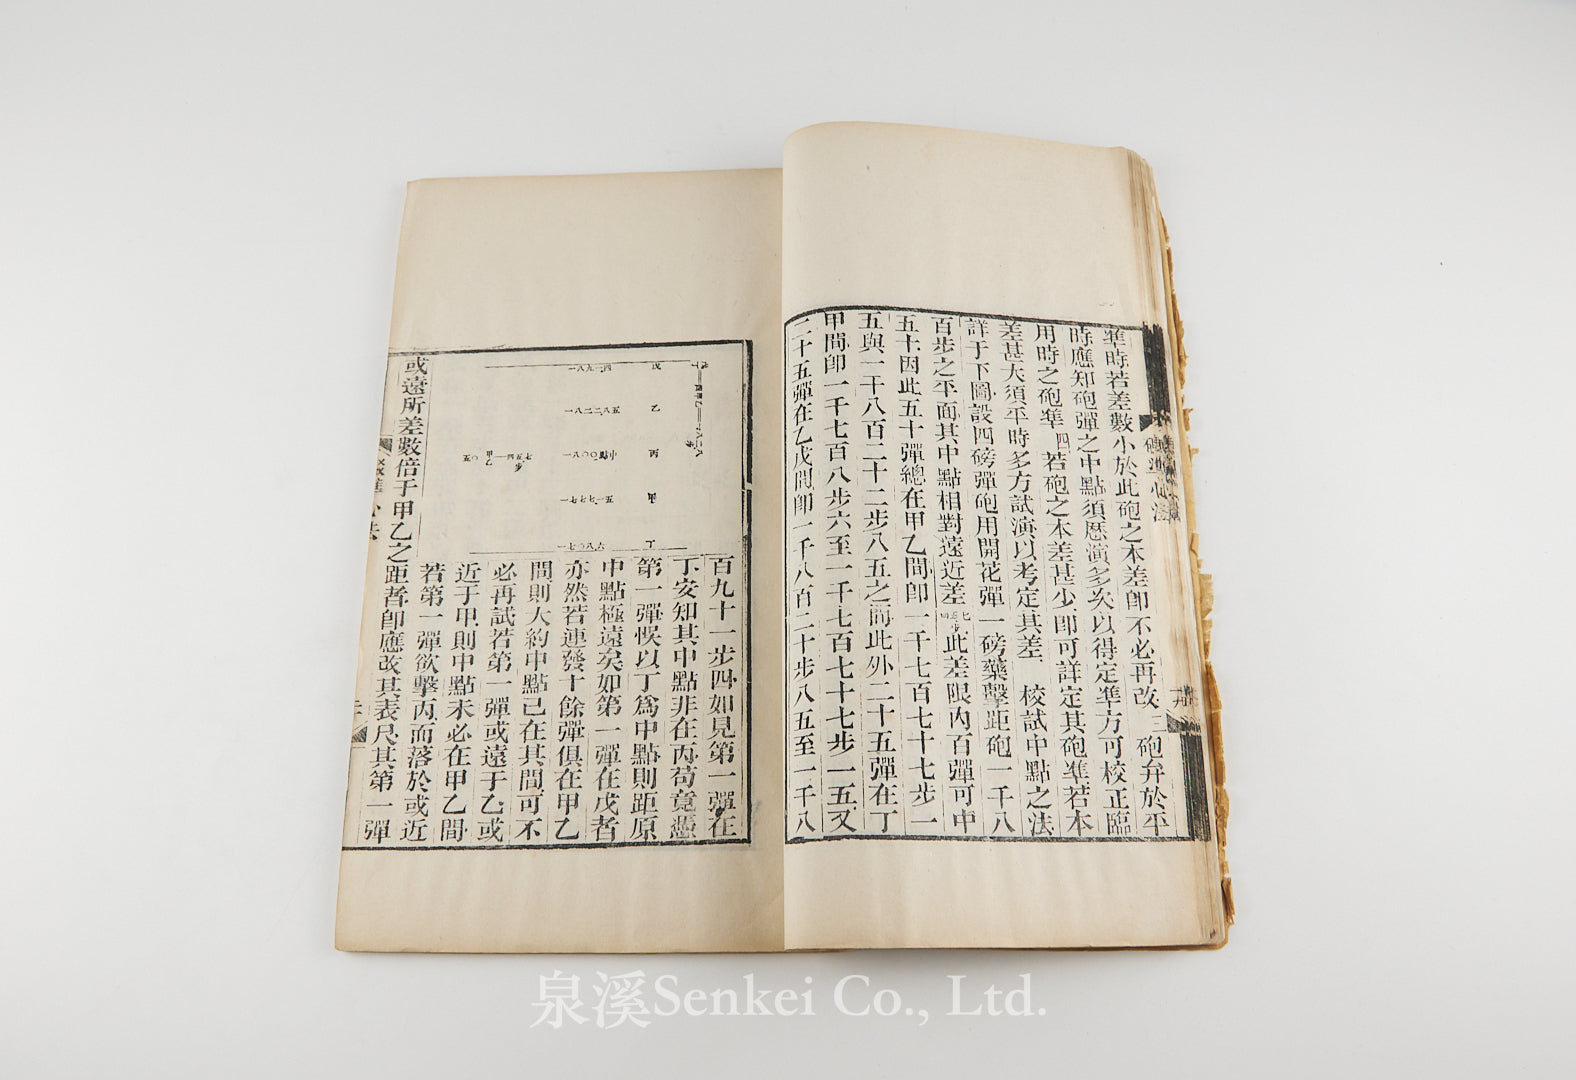 準時若差數小於此砲之本差卽不必再改 三 砲弁於平
時應知砲彈之中點須歷演多次以得定準方可校正臨
用時之砲準 四 若砲之本差甚少卽可詳定其砲準若本
差甚大須平時多方試演以考定其差 校試中點之法
詳于下圖設四磅彈砲用開花彈一磅藥擊距砲一千八
百步之平面其中點相對遠近差此差限內百彈可中
五十因此五十彈總在甲乙間卽一千七百七十七步一
五與一千八百二十二步八五之間此外二十五彈在丁
甲間卽一千七百八步六至一千七百七十七步一五又
二十五彈在乙戊間卽一千八百二十步八五至一千八
戊 一八九一四
乙 一八二二八五
丙 中點 一八〇〇
甲 一七七七一五
丁 一七〇八六
百九十一步四如見第一彈在
丁安知其中點非在丙苟竟憑
第一彈悞以丁爲中點則距原
中點極遠矣如第一彈在戊者
亦然若連發十餘彈俱在甲乙
間則大約中點已在其間可不
必再試若第一彈或遠于乙或
近于甲則中點未必在甲乙間
若第一彈欲擊丙而落於或近
或遠所差數倍于甲乙之距者卽應改其表尺其第一彈
泉溪Senkei Co., Ltd.